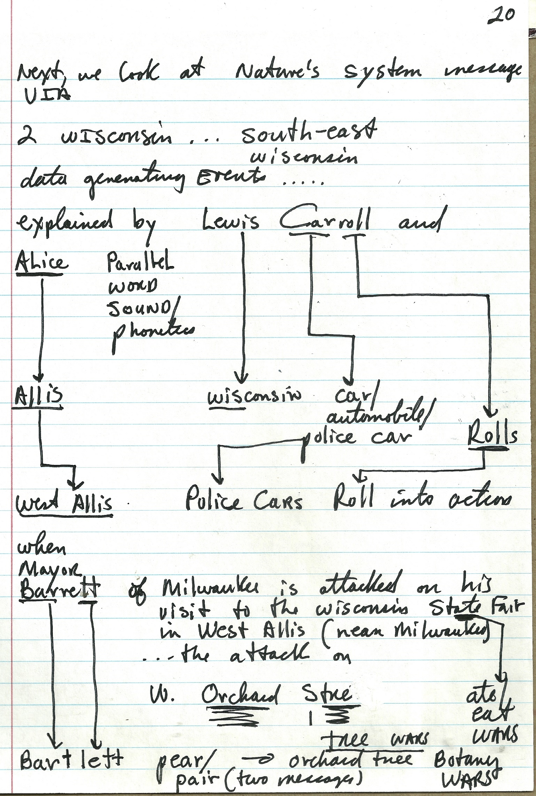 20
Next, we look at Nature's system message
VIA
2 wisconsin ... south-east
wisconsin
data generating Events .....
explained by Lewis Carroll and
Alice Parallel
word
sound/
phonetics
Allis wisconsin car/
automobile/
police car
Rolls
West Allis Police Cars Roll into action
when
Mayor
Barrett of Milwaukee is attacked on his
visit to the wisconsin State Fair
in West Allis (near Milwaukee)
...the attack on
W. Orchard Stree ate/
eat
tree WARS WARS
Bartlett pear/ → orchard tree Botany
pair (two messages) WARS